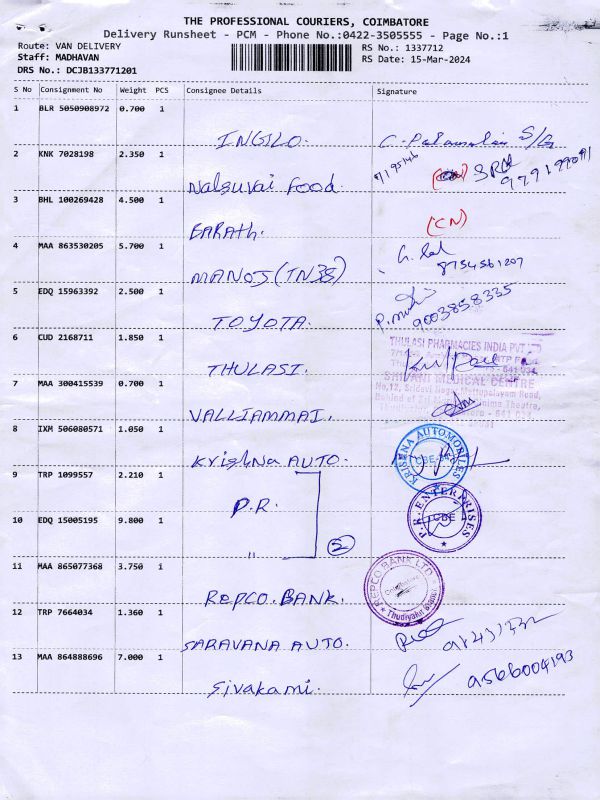 THE PROFESSIONAL COURIERS, COIMBATORE
Delivery Runsheet - PCM - Phone No.:0422-3505555 - Page No.:1
Route: VAN DELIVERY
RS No.: 1337712
Staff: MADHAVAN
RS Date: 15-Mar-2024
DRS No.: DCJB133771201
S No Consignment No Weight PCS Consignee Details Signature
1 BLR 5050908972 0.700 1
INGILO.
2 KNK 7028198 2.350 1
Nalguvai Food.
3 BHL 100269428 4.500 1
BARATH. (CN)
4 MAA 863530205 5.700 1
MANOJ (TN38) 8754561207
5 EDQ 15963392 2.500 1
TOYOTA. 9003858335
6 CUD 2168711 1.850 1
THULASI PHARMACIES INDIA PVT LTD
THULASI.
SHIVANI MEDICAL CENTRE
7 MAA 300415539 0.700 1
VALLIAMMAI.
8 IXM 506080571 1.050 1
Krishna AUTO. KRISHNA AUTOMOBILES CBE
9 TRP 1099557 2.210 1
P.R. P.R. ENTERPRISES CBE
10 EDQ 15005195 9.800 1
" 2
11 MAA 865077368 3.750 1
REPCO. BANK. REPCO BANK LTD Thudiyalur Branch
12 TRP 7664034 1.360 1
SARAVANA AUTO.
13 MAA 864888696 7.000 1
Sivakami. 9566004193